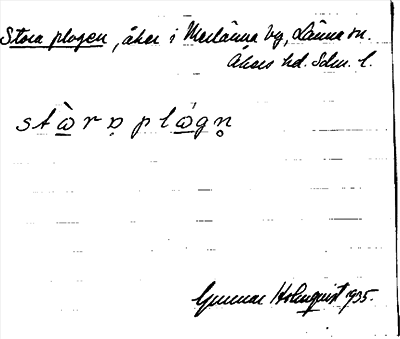 Stora plogen, åker i Merlänna by, Länna sn.
Åkers hd. Sdm. l.
stὼrɒ plὼgn̥
Gunnar Holmquist 1935.